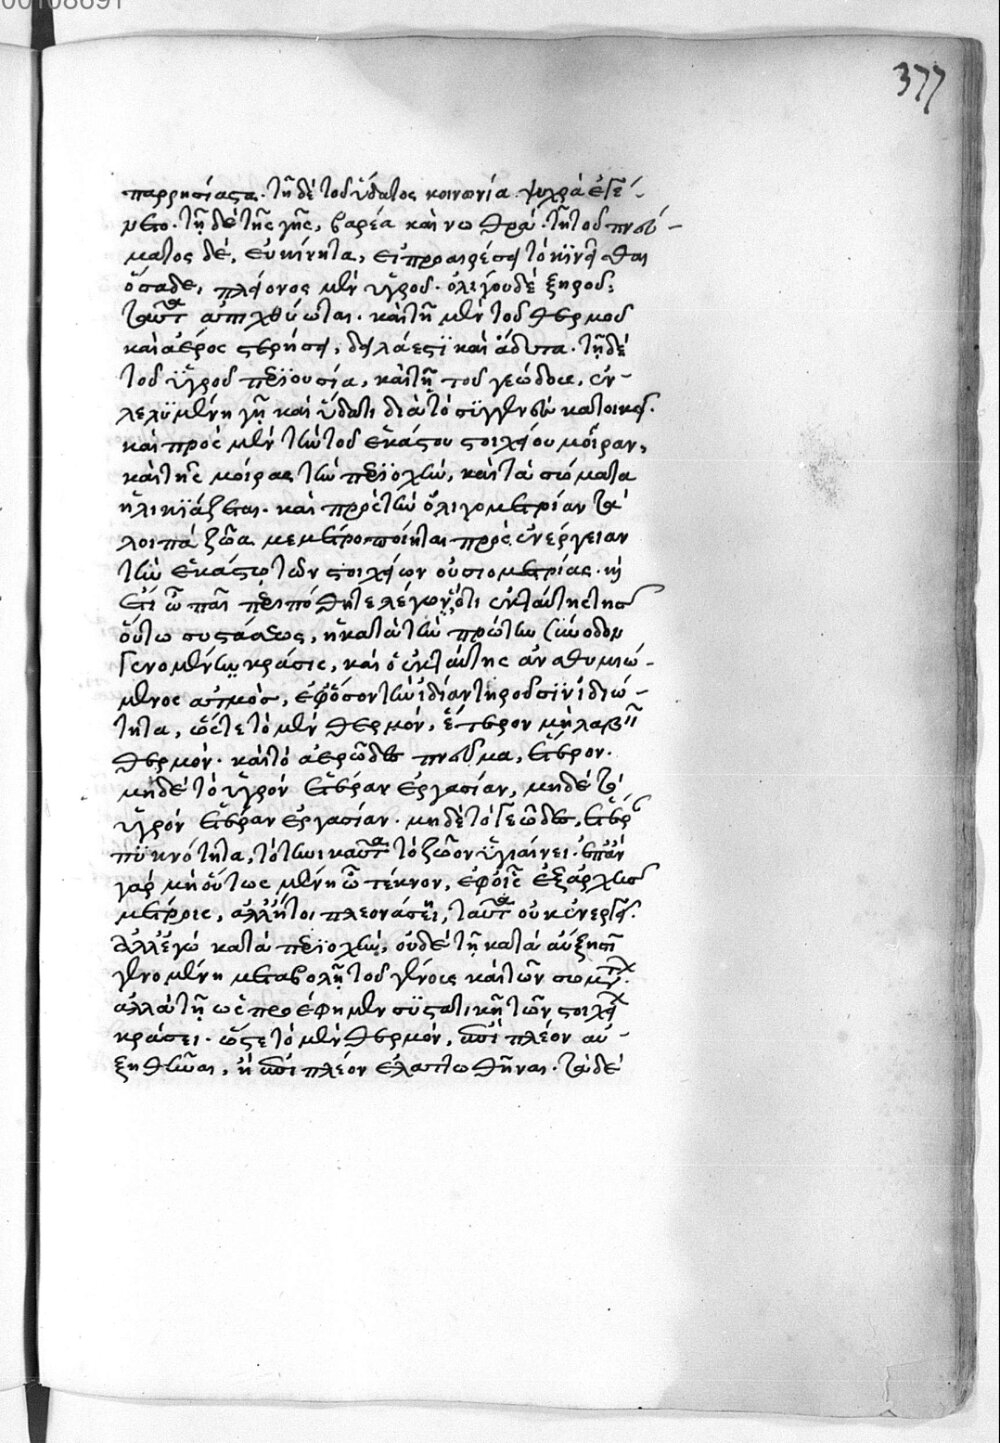 00108691
377
παρρησίαστα. τῆ δὲ τοῦ ὕδατος κοινωνία ψυχρὰ ἐγέ-
νετο. τῆ δὲ τῆς γῆς, βαρέα καὶ νωθρά. τῆ τοῦ πνεύ-
ματος δὲ, εὐκίνητα, εἰ προαιρέσει τὸ κινεῖσθαι
ὅσα δὲ, πλείονος μὲν ὑγροῦ. ὀλίγου δὲ ξηροῦ,
ταῦτα καὶ τῆ μὲν τοῦ θερμοῦ
καὶ ἀέρος στερήσει, δειλά ἐστι καὶ ἄδυτα. τῆ δὲ
τοῦ ὑγροῦ περιουσία, καὶ τῆ τοῦ γεώδους, ἐν
γῆ καὶ ὕδατι διὰ τὸ συγγενὲς κατοικεῖ.
καὶ πρὸς μὲν τὴν τοῦ ἑκάστου στοιχείου μοῖραν,
καὶ τῆς μοίρας τὴν περιοχὴν, καὶ τὰ σώματα
ἡλικιάζεται. καὶ πρὸς τὴν ὀλιγομετρίαν τὰ
λοιπὰ ζῶα μεμετροποίηται πρὸς ἐνέργειαν
τὴν ἑκάστω τῶν στοιχείων οὐσιομετρίας.
ἔτι ὦ παῖ περιπόθητε λέγων, ὅτι ἐκ ταύτης τῆς
οὕτω συστάσεως, ἡ κατὰ τὴν πρώτην σύνοδον
γενομένη κρᾶσις, καὶ ὁ ἐκ ταύτης ἀναθυμιώ-
μενος ἀτμὸς, ἐφ' ὅσον τὴν ἰδίαν τηροῦσιν ἰδιό-
τητα, ὥστε τὸ μὲν θερμὸν, ἕτερον μὴ λαβεῖν
θερμόν. καὶ τὸ ἀερῶδες πνεῦμα, ἕτερον.
μηδὲ τὸ ὑγρὸν ἑτέραν ἐργασίαν, μηδὲ τὸ
ὑγρὸν ἑτέραν ἐργασίαν. μηδὲ τὸ γεῶδες, ἑτέραν
πυκνότητα, τότε ταῦτα τὸ ζῶον ὑγιαίνει. ἐπὰν
γὰρ μὴ οὕτως μένη ὦ τέκνον, ἐφ' οἷς ἐξ ἀρχῆς
μέτροις, ἀλλ' ἤτοι πλεονάση, ταῦτα οὐκ ἐνεργεία.
ἀλλ' ἐγὼ κατὰ περιοχὴν, οὐδὲ τῆ κατὰ αὔξησιν
γενομένη μεταβολῆ τοῦ γένους καὶ τῶν σωμάτων.
ἀλλὰ τῆ ὥσπερ ἔφημεν συστατικῆ τῶν στοιχείων
κράσει. ὥστε τὸ μὲν θερμὸν, ἐπὶ πλέον αὐ-
ξηθῆναι, ἢ ἐπὶ πλέον ἐλαττωθῆναι. τὸ δὲ